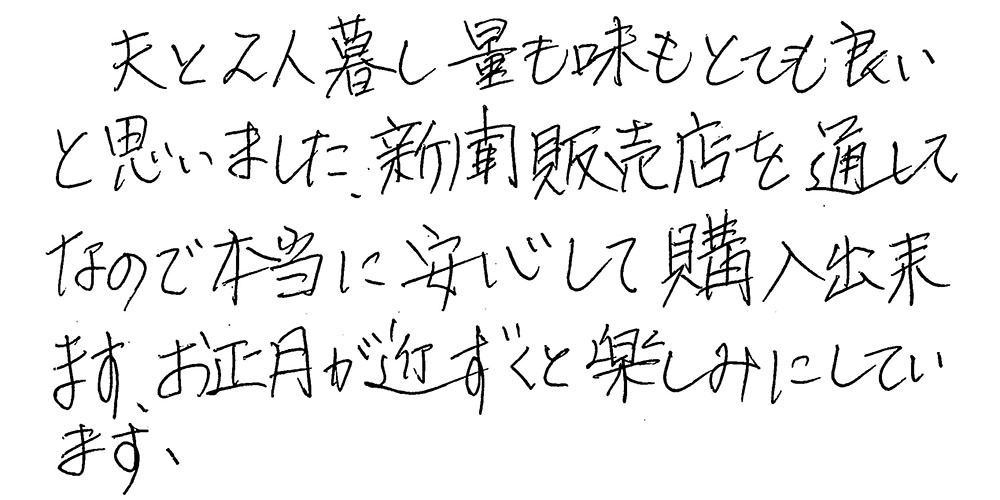 夫と2人暮し量も味もとても良い
と思いました、新聞販売店を通して
なので本当に安心して購入出来
ます、お正月が近ずくと楽しみにしてい
ます、